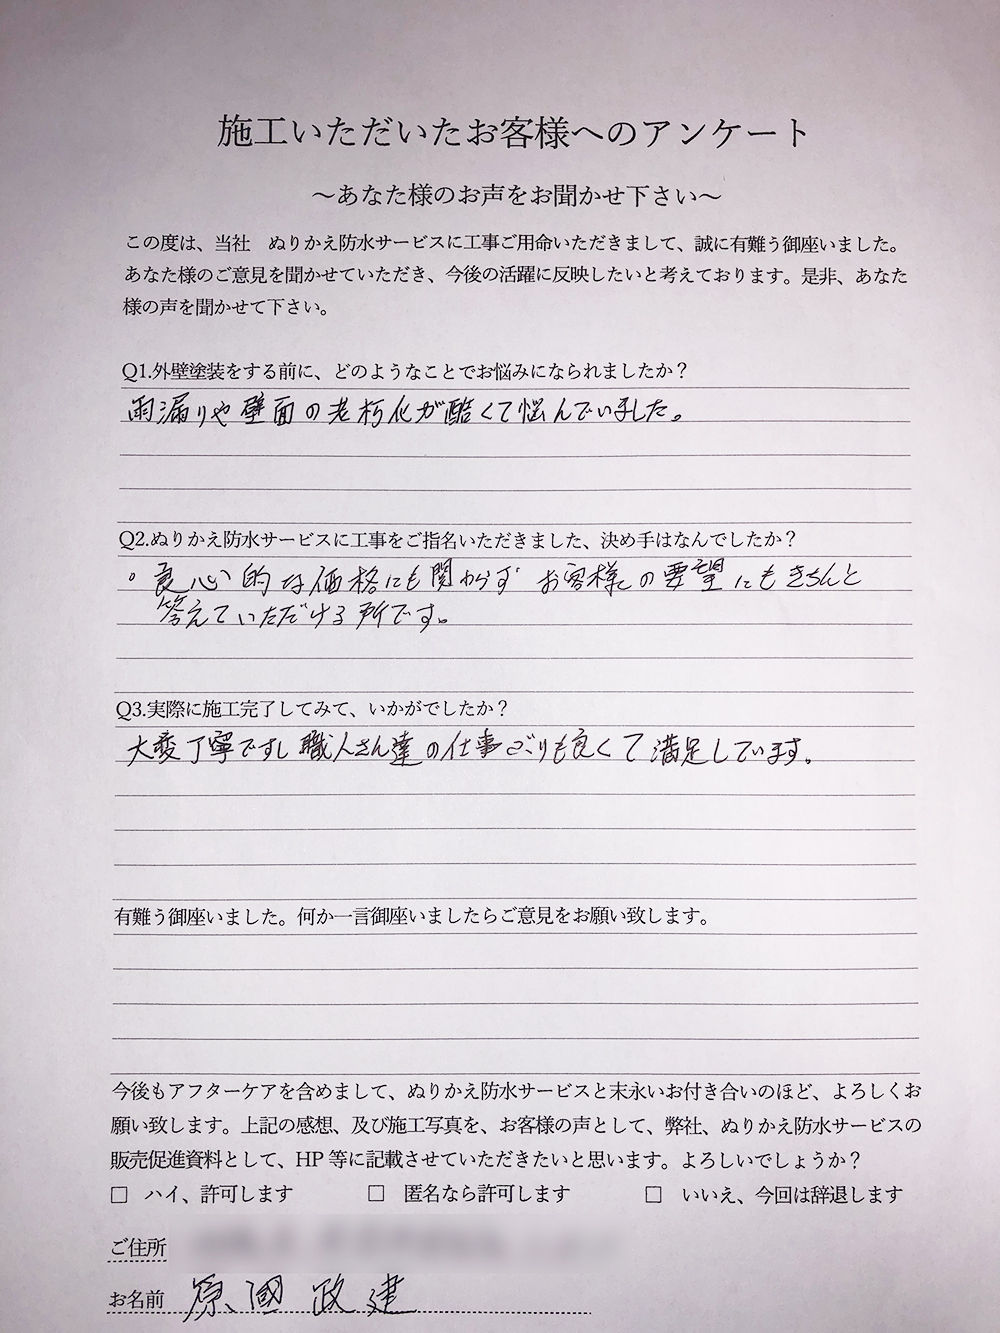 施工いただいたお客様へのアンケート
～あなた様のお声をお聞かせ下さい～
この度は、当社　ぬりかえ防水サービスに工事ご用命いただきまして、誠に有難う御座いました。
あなた様のご意見を聞かせていただき、今後の活躍に反映したいと考えております。是非、あなた
様の声を聞かせて下さい。
Q1.外壁塗装をする前に、どのようなことでお悩みになられましたか？
雨漏りや壁面の老朽化が酷くて悩んでいました。
Q2.ぬりかえ防水サービスに工事をご指名いただきました、決め手はなんでしたか？
。良心的な価格にも関わらず お客様の要望にもきちんと
答えていただける所です。
Q3.実際に施工完了してみて、いかがでしたか？
大変丁寧ですし職人さん達の仕事ぶりも良くて満足しています。
有難う御座いました。何か一言御座いましたらご意見をお願い致します。
今後もアフターケアを含めまして、ぬりかえ防水サービスと末永いお付き合いのほど、よろしくお
願い致します。上記の感想、及び施工写真を、お客様の声として、弊社、ぬりかえ防水サービスの
販売促進資料として、HP 等に記載させていただきたいと思います。よろしいでしょうか？
□ ハイ、許可します　□ 匿名なら許可します　□ いいえ、今回は辞退します
ご住所
お名前 原國 政建